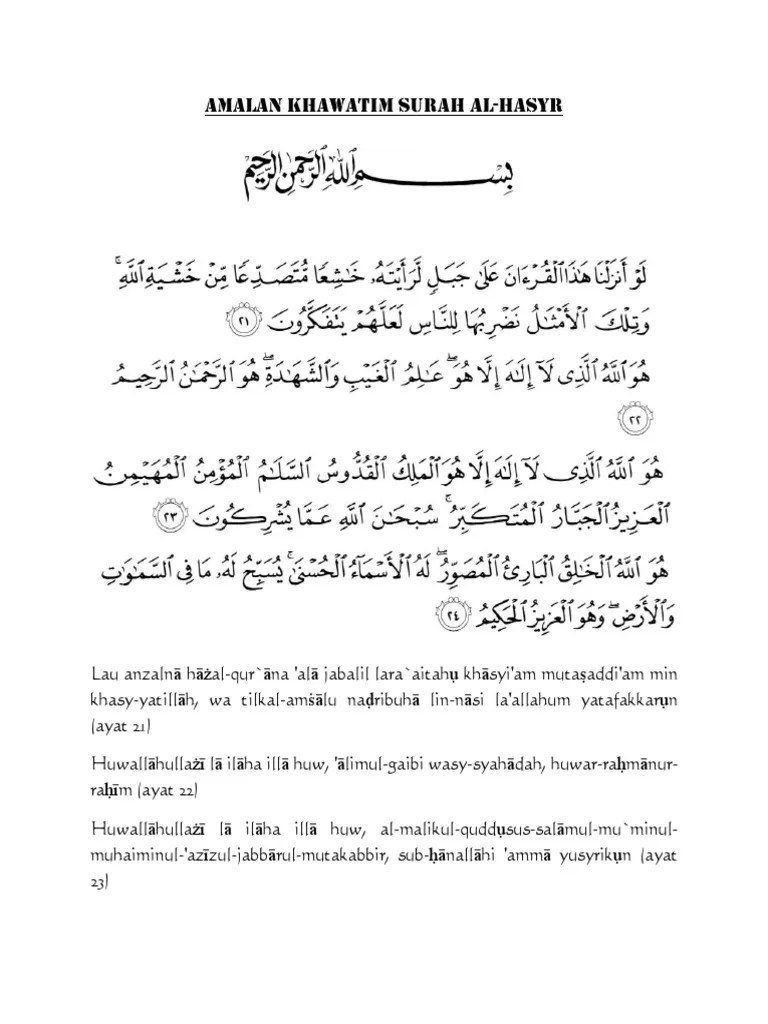 AMALAN KHAWATIM SURAH AL-HASYR
بِسْمِ اللَّهِ الرَّحْمَٰنِ الرَّحِيمِ
لَوْ أَنزَلْنَا هَٰذَا الْقُرْءَانَ عَلَىٰ جَبَلٍ لَّرَأَيْتَهُۥ خَٰشِعًا مُّتَصَدِّعًا مِّنْ خَشْيَةِ اللَّهِ ۚ
وَتِلْكَ الْأَمْثَٰلُ نَضْرِبُهَا لِلنَّاسِ لَعَلَّهُمْ يَتَفَكَّرُونَ ٢١
هُوَ اللَّهُ الَّذِى لَآ إِلَٰهَ إِلَّا هُوَ ۖ عَٰلِمُ الْغَيْبِ وَالشَّهَٰدَةِ ۖ هُوَ الرَّحْمَٰنُ الرَّحِيمُ
٢٢
هُوَ اللَّهُ الَّذِى لَآ إِلَٰهَ إِلَّا هُوَ الْمَلِكُ الْقُدُّوسُ السَّلَٰمُ الْمُؤْمِنُ الْمُهَيْمِنُ
الْعَزِيزُ الْجَبَّارُ الْمُتَكَبِّرُ ۚ سُبْحَٰنَ اللَّهِ عَمَّا يُشْرِكُونَ ٢٣
هُوَ اللَّهُ الْخَٰلِقُ الْبَارِئُ الْمُصَوِّرُ ۖ لَهُ الْأَسْمَآءُ الْحُسْنَىٰ ۚ يُسَبِّحُ لَهُۥ مَا فِى السَّمَٰوَٰتِ
وَالْأَرْضِ ۖ وَهُوَ الْعَزِيزُ الْحَكِيمُ ٢٤
Lau anzalnā hāżal-qur`āna 'alā jabalil lara`aitahụ khāsyi'am mutaṣaddi'am min
khasy-yatillāh, wa tilkal-amṡālu naḍribuhā lin-nāsi la'allahum yatafakkarụn
(ayat 21)
Huwallāhullażī lā ilāha illā huw, 'ālimul-gaibi wasy-syahādah, huwar-raḥmānur-
raḥīm (ayat 22)
Huwallāhullażī lā ilāha illā huw, al-malikul-quddụsus-salāmul-mu`minul-
muhaiminul-'azīzul-jabbārul-mutakabbir, sub-ḥānallāhi 'ammā yusyrikụn (ayat
23)